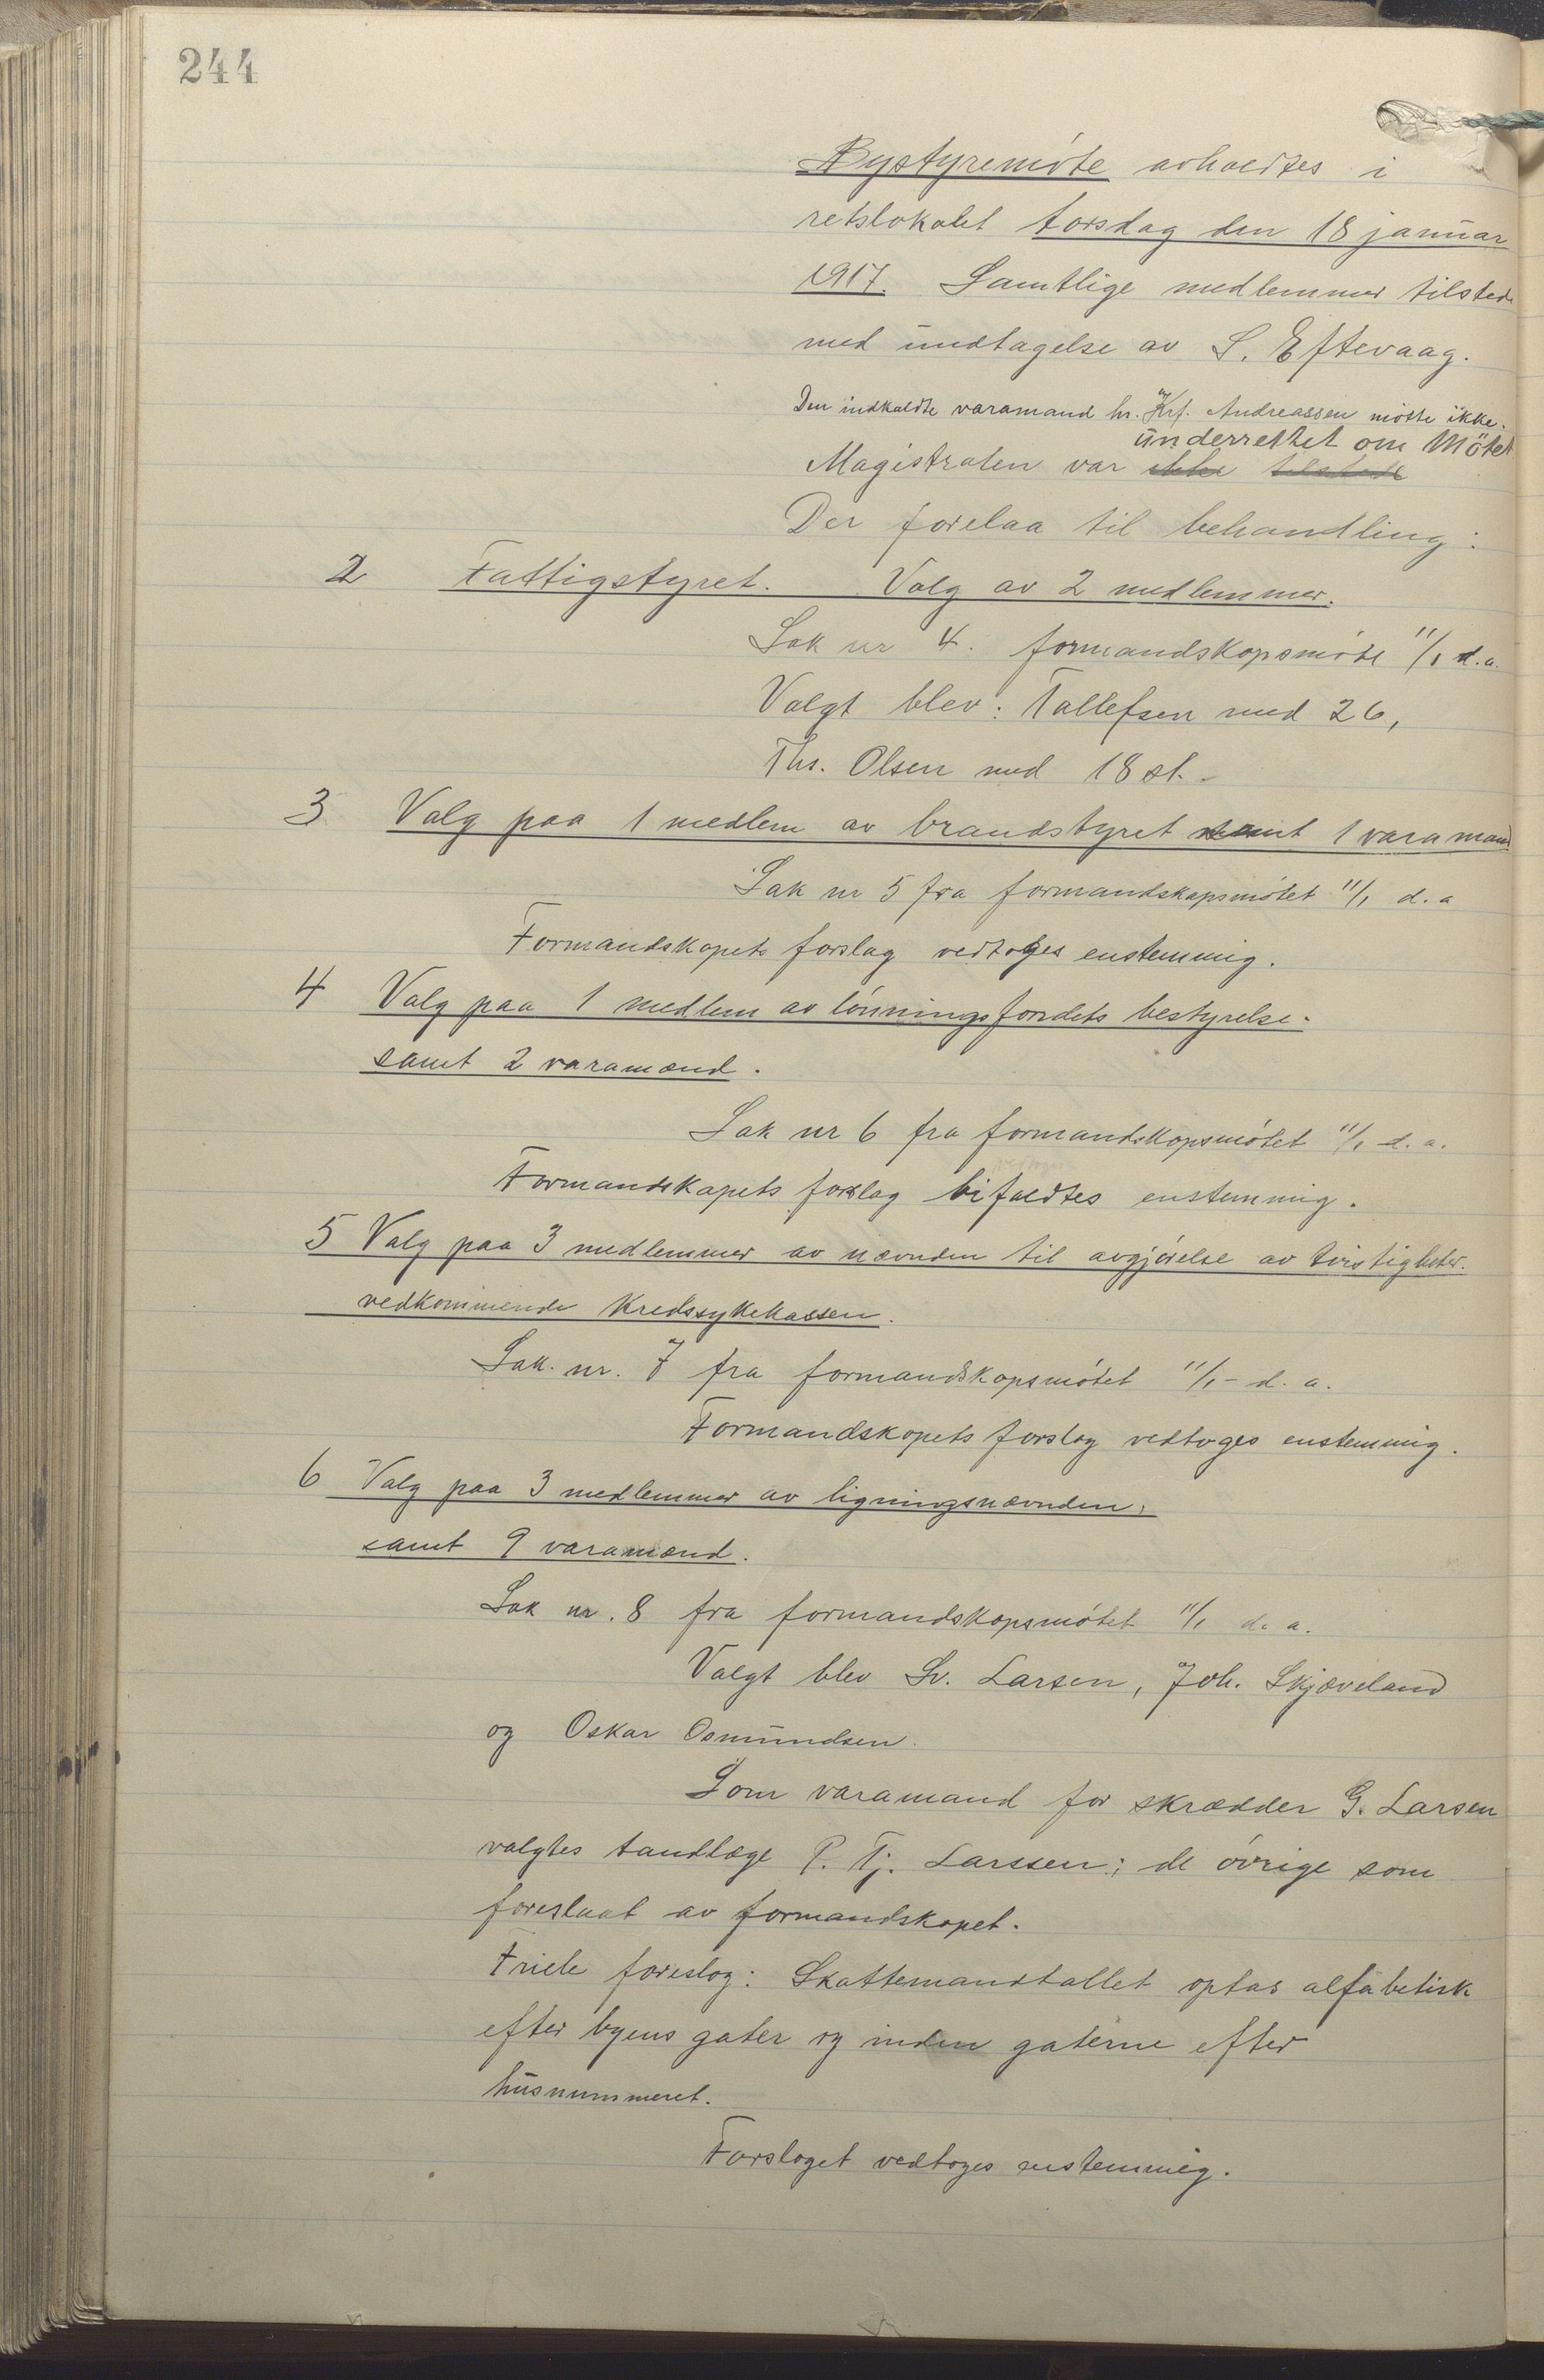 244
Bystyremöte avholdtes i
retslokalet torsdag den 18 januar
1917. Samtlige medlemmer tilstede
med undtagelse av S. Eftevaag.
Den indkaldte varamand hr. Krf. Andreassen mötte ikke.
underrettet om Mötet
Magistraten var ikke tilstede
Der forelaa til behandling:
2 Fattigstyret. Valg av 2 medlemmer.
Sak nr 4. formandskapsmöte 11/1 d.a.
Valgt blev: Tallefsen med 26,
Ths. Olsen med 18 st. -
3 Valg paa 1 medlem av brandstyret samt 1 varamand
Sak nr 5 fra formandskapsmötet 11/1 d. a
Formandskapets forslag vedtoges enstemmig.
4 Valg paa 1 medlem av lönningsfondets bestyrelse.
samt 2 varamænd.
Sak nr 6 fra formandskapsmötet 11/1 d. a.
Formandskapets forslag bifaldtes enstemmig.
5 Valg paa 3 medlemmer av nævnden til avgjörelse av tvistigheter.
vedkommende Kredssykekassen.
Sak. nr. 7 fra formandskapsmötet 11/1 - d. a.
Formandskapets forslag vedtoges enstemmig.
6 Valg paa 3 medlemmer av ligningsnævnden,
samt 9 varamænd.
Sak nr. 8 fra formandskapsmötet 11/1 d. a.
Valgt blev Sv. Larsen, Joh. Skjæveland
og Oskar Osmundsen.
Som varamand for skrædder G. Larsen
valgtes tandlæge P. Tj. Larssen; de övrige som
foreslaat av formandskapet.
Friele foreslog: Skattemandtallet optas alfabetisk
efter byens gater og inden gaterne efter
husnummeret.
Forslaget vedtoges enstemmig.